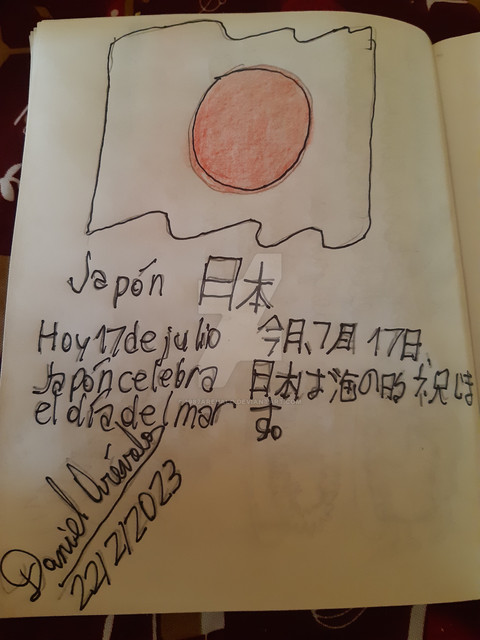 Japón 日本
Hoy 17 de julio
Japón celebra
el día del mar
今月、7月 17日、
日本は海の祝しま
す。
Daniel Arévalo
22/2/2023